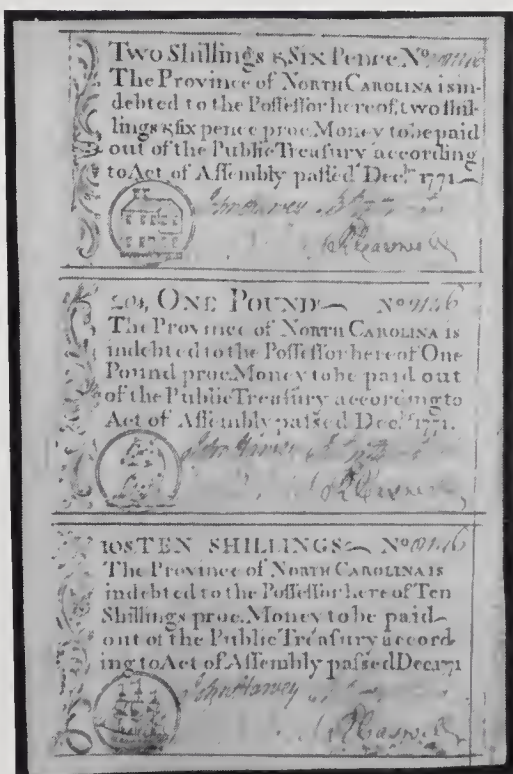 Two Shillings & Six Pence N°
The Province of NORTH CAROLINA is in-
debted to the Poſſeſſor hereof, two ſhil-
lings & ſix pence proc. Money to be paid
out of the Public Treaſury according
to Act of Aſſembly paſſed Dec.r 1771
John Harvey
R Caswell
20s, ONE POUND N°
The Province of NORTH CAROLINA is
indebted to the Poſſeſſor hereof One
Pound proc. Money to be paid out
of the Public Treaſury according to
Act of Aſſembly paſsed Dec.r 1771.
John Harvey
R Caswell
10S. TEN SHILLINGS N°
The Province of NORTH CAROLINA IS
indebted to the Poſſeſſor here of Ten
Shillings proc. Money to be paid
out of the Public Treaſury accord
ing to Act of Aſſembly paſsed Dec. 1771
John Harvey
R Caswell